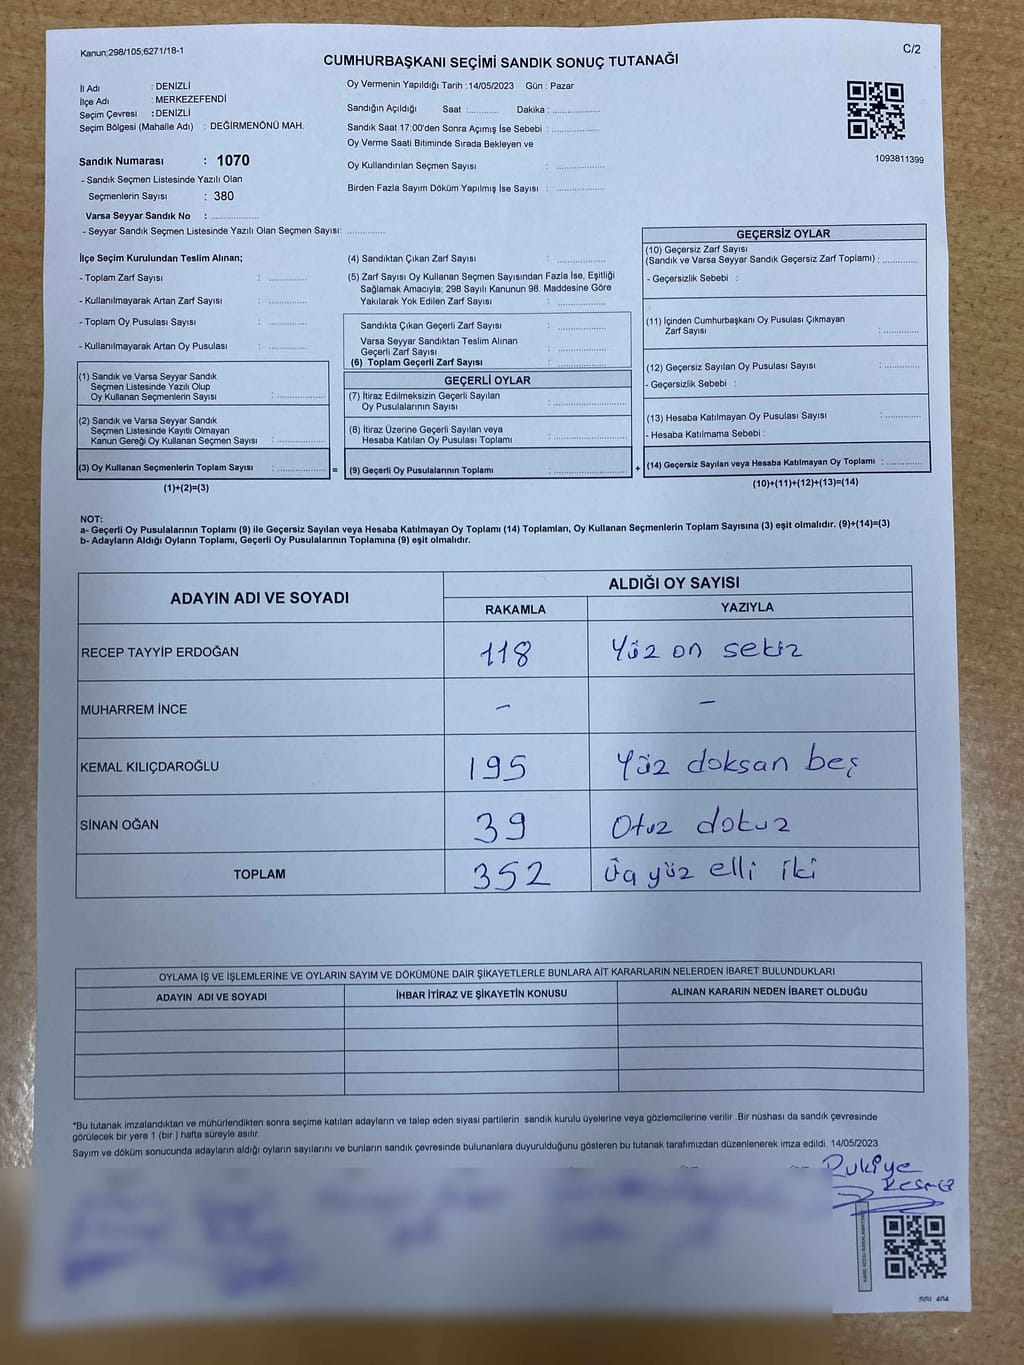 Kanun;298/105;6271/18-1
C/2
CUMHURBAŞKANI SEÇİMİ SANDIK SONUÇ TUTANAĞI
İl Adı : DENİZLİ
İlçe Adı : MERKEZEFENDİ
Seçim Çevresi : DENİZLİ
Seçim Bölgesi (Mahalle Adı) : DEĞİRMENÖNÜ MAH.
Sandık Numarası : 1070
- Sandık Seçmen Listesinde Yazılı Olan
Seçmenlerin Sayısı : 380
Varsa Seyyar Sandık No : ................
- Seyyar Sandık Seçmen Listesinde Yazılı Olan Seçmen Sayısı: ............
Oy Vermenin Yapıldığı Tarih : 14/05/2023 Gün : Pazar
Sandığın Açıldığı Saat :.......... Dakika : ................
Sandık Saat 17:00'den Sonra Açımış İse Sebebi : ................
Oy Verme Saati Bitiminde Sırada Bekleyen ve
Oy Kullandırılan Seçmen Sayısı : ................
Birden Fazla Sayım Döküm Yapılmış İse Sayısı : ................
1093811399
İlçe Seçim Kurulundan Teslim Alınan;
- Toplam Zarf Sayısı : ............
- Kullanılmayarak Artan Zarf Sayısı : ............
- Toplam Oy Pusulası Sayısı : ............
- Kullanılmayarak Artan Oy Pusulası : ............
(1) Sandık ve Varsa Seyyar Sandık
Seçmen Listesinde Yazılı Olup
Oy Kullanan Seçmenlerin Sayısı : ................
(2) Sandık ve Varsa Seyyar Sandık
Seçmen Listesinde Kayıtlı Olmayan
Kanun Gereği Oy Kullanan Seçmen Sayısı : ................
(3) Oy Kullanan Seçmenlerin Toplam Sayısı : ................
(1)+(2)=(3)
(4) Sandıktan Çıkan Zarf Sayısı : ................
(5) Zarf Sayısı Oy Kullanan Seçmen Sayısından Fazla İse, Eşitliği
Sağlamak Amacıyla; 298 Sayılı Kanunun 98. Maddesine Göre
Yakılarak Yok Edilen Zarf Sayısı : ................
Sandıkta Çıkan Geçerli Zarf Sayısı : ................
Varsa Seyyar Sandıktan Teslim Alınan
Geçerli Zarf Sayısı : ................
(6) Toplam Geçerli Zarf Sayısı : ................
GEÇERLİ OYLAR
(7) İtiraz Edilmeksizin Geçerli Sayılan
Oy Pusulalarının Sayısı : ................
(8) İtiraz Üzerine Geçerli Sayılan veya
Hesaba Katılan Oy Pusulası Toplamı : ................
= (9) Geçerli Oy Pusulalarının Toplamı : ................
GEÇERSİZ OYLAR
(10) Geçersiz Zarf Sayısı
(Sandık ve Varsa Seyyar Sandık Geçersiz Zarf Toplamı) : ............
- Geçersizlik Sebebi :
(11) İçinden Cumhurbaşkanı Oy Pusulası Çıkmayan
Zarf Sayısı : ............
(12) Geçersiz Sayılan Oy Pusulası Sayısı : ............
- Geçersizlik Sebebi :
(13) Hesaba Katılmayan Oy Pusulası Sayısı : ............
- Hesaba Katılmama Sebebi :
+ (14) Geçersiz Sayılan veya Hesaba Katılmayan Oy Toplamı : ............
(10)+(11)+(12)+(13)=(14)
NOT:
a- Geçerli Oy Pusulalarının Toplamı (9) ile Geçersiz Sayılan veya Hesaba Katılmayan Oy Toplamı (14) Toplamları, Oy Kullanan Seçmenlerin Toplam Sayısına (3) eşit olmalıdır. (9)+(14)=(3)
b- Adayların Aldığı Oyların Toplamı, Geçerli Oy Pusulalarının Toplamına (9) eşit olmalıdır.
ADAYIN ADI VE SOYADI ALDIĞI OY SAYISI
RAKAMLA YAZIYLA
RECEP TAYYİP ERDOĞAN 118 Yüz on sekiz
MUHARREM İNCE - -
KEMAL KILIÇDAROĞLU 195 Yüz doksan beş
SİNAN OĞAN 39 Otuz dokuz
TOPLAM 352 Üç yüz elli iki
OYLAMA İŞ VE İŞLEMLERİNE VE OYLARIN SAYIM VE DÖKÜMÜNE DAİR ŞİKAYETLERLE BUNLARA AİT KARARLARIN NELERDEN İBARET BULUNDUKLARI
ADAYIN ADI VE SOYADI İHBAR İTİRAZ VE ŞİKAYETİN KONUSU ALINAN KARARIN NEDEN İBARET OLDUĞU
*Bu tutanak imzalandıktan ve mühürlendikten sonra seçime katılan adayların ve talep eden siyasi partilerin sandık kurulu üyelerine veya gözlemcilerine verilir .Bir nüshası da sandık çevresinde
görülecek bir yere 1 (bir ) hafta süreyle asılır.
Sayım ve döküm sonucunda adayların aldığı oyların sayılarını ve bunların sandık çevresinde bulunanlara duyurulduğunu gösteren bu tutanak tarafımızdan düzenlenerek imza edildi. 14/05/2023
Rukiye